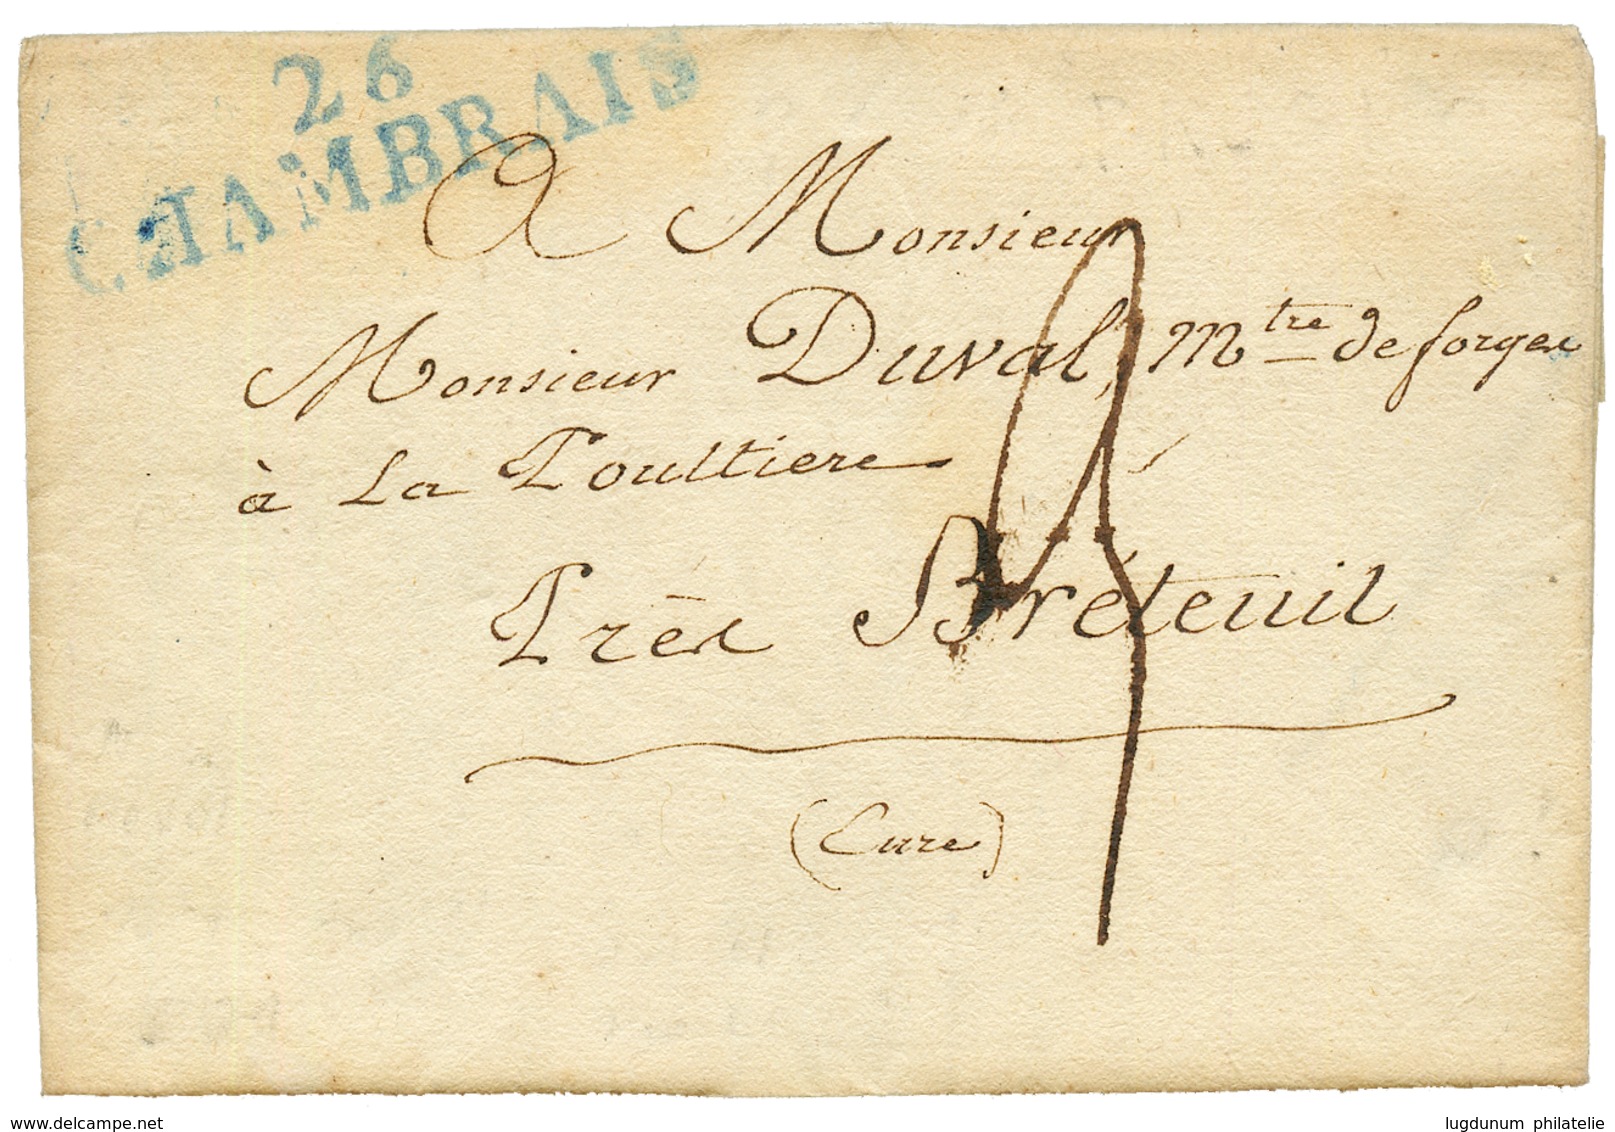 26
CHAMBRAIS
A Monsieur
Monsieur Duval, Mtre de forges
à La Poultiere
Près Bréteuil
(Eure)
delcampe.net
lugdunum philatelie